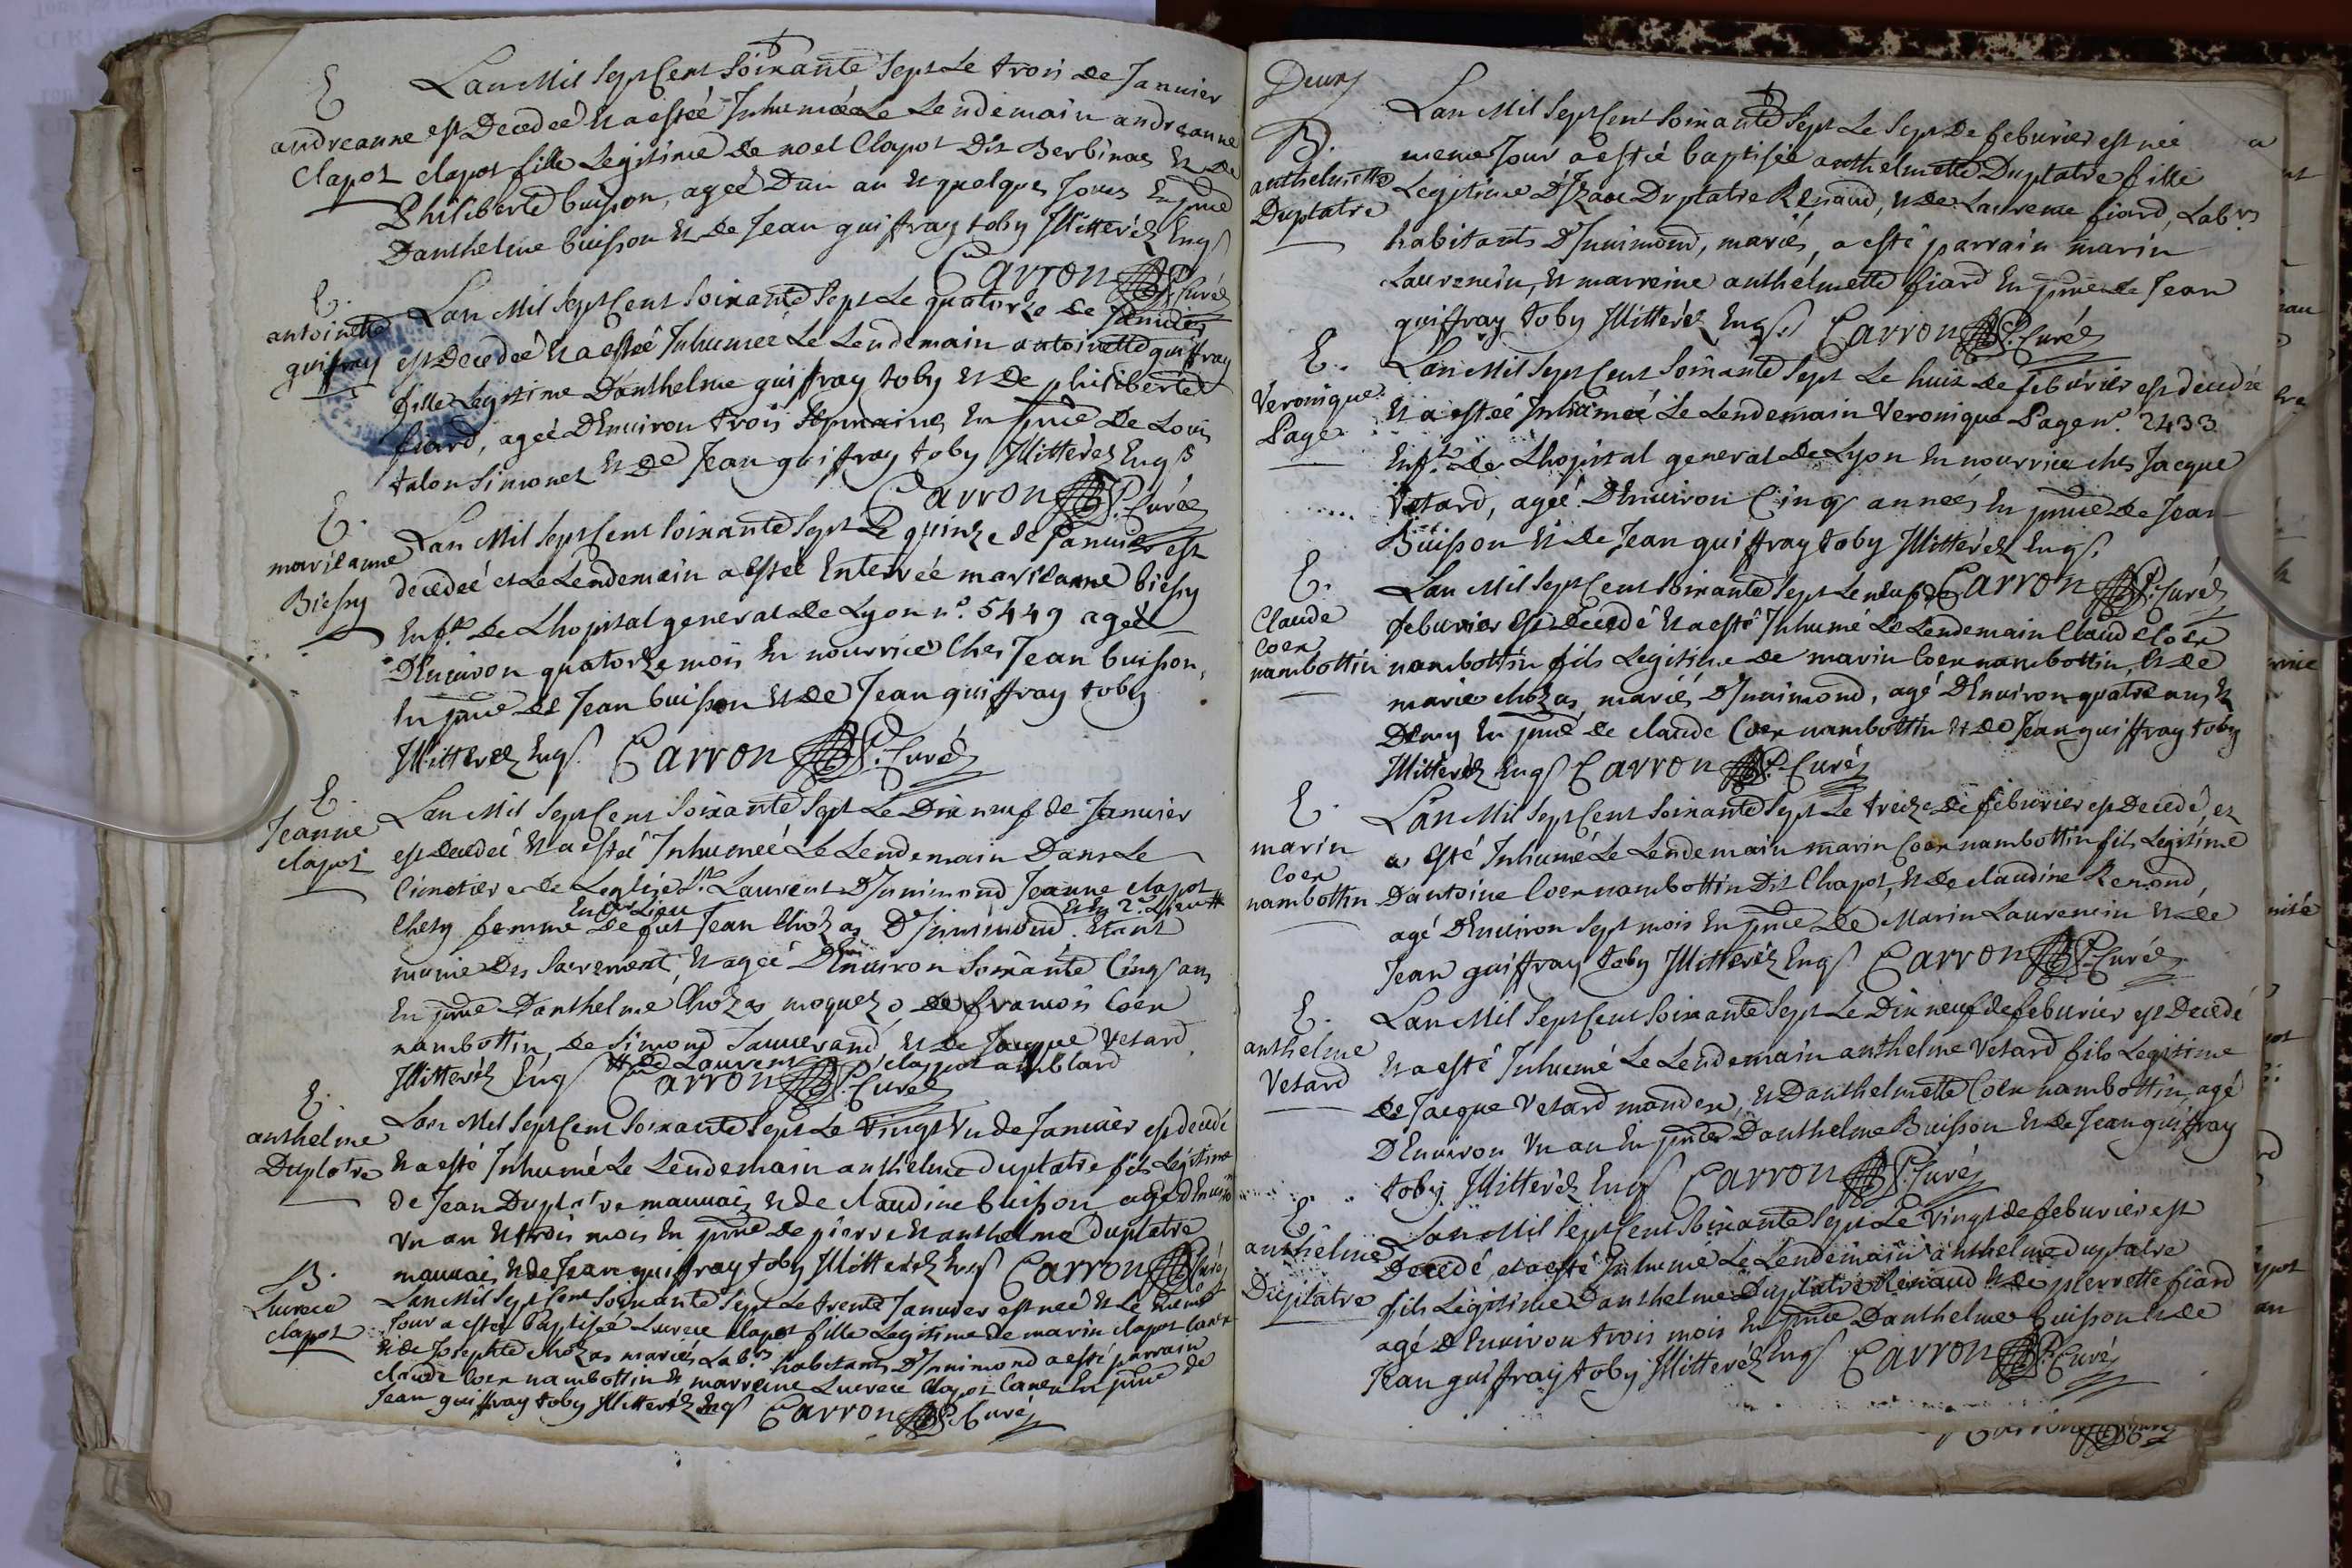 E
andreanne
Clapot
Lan Mil Sept Cent Soixante Sept Le trois de Januier
est Decedeé Et a estée Inhumée Le Lendemain andreanne
clapot fille Legitime de noel Clapot Dit Berbinae Et De
Philiberte buisson, ageé Dun an Et quelques Jours En pnce
Danthelme buisson Et De Jean guiffray toby Illitteréz Enqs
Carron P. Curé
E.
antoinette
guiffray
Lan Mil Sept Cent Soixante Sept Le quatorze de Januier
est Decedeé Et a estée Inhumeé Le Lendemain antoinette guiffray
fille Legitime Danthelme guiffray toby Et De philiberte
fiard, ageé DEnuiron trois Semaines En pnce De Louis
talon Simonet Et De Jean guiffray toby Illitteréz Enqs
Carron P. Curé
E.
marie anne
Biessy
Lan Mil Sept Cent Soixante Sept Le quinze de Januier est
decedeé et Le Lendemain a estée Enterrée marie anne biessy
Enft de Lhopital general de Lyon n.° 5449 ageé
DEnuiron quatorze mois En nourrice Ches Jean buisson,
En pnce de Jean buisson Et de Jean guiffray toby
Illitteréz Enqs Carron P. Curé
E.
Jeanne
clapot
Lan Mil Sept Cent Soixante Sept Le Dix neuf de Januier
est decedeé Et a estée Inhumeé Le Lendemain Dans Le
Cimetiere de Leglise St Laurent DInnimond Jeanne clapot
En 1er Lieu Et En 2.d Lieu #
Chesy femme De fut Jean Chozas DInnimond Etant
munie Des Sacrement, Et ageé DEnuiron Soixante Cinq ans
En pnce Danthelme Chozas moquet De francois Coen
nambottin, de Simond Sauuerand, Et De Jacque Vetard
Illitteréz Enqs # de Laurent clapot amblard
Carron P. Curé
E.
anthelme
Duplatre
Lan Mil Sept Cent Soixante Sept Le Vingt Vn de Januier est decedé
Et a esté Inhumé Le Lendemain anthelme duplatre fils Legitime
de Jean Duplatre mauuais Et de claudine buisson, agé dEnuiron
Vn an Et trois mois En pnce de pierre Et anthelme duplatre
mauuais Et de Jean guiffray toby Illitteréz Enqs Carron P. Curé
B.
Lucrece
clapot
Lan Mil Sept Cent Soixante Sept Le trente Januier est neé Et Le meme
Jour a estée baptisée Lucrece clapot fille Legitime de marin clapot
Et de Josephte chozas mariés Labrs habitans DInnimond a esté parrain
claude Coen nambottin Et marreine Lucrece Clapot En pnce de
Jean guiffray toby Illitteréz Enqs Carron P. Curé
Deux
B.
anthelmette
Duplatre
Lan Mil Sept Cent Soixante Sept Le Sept De feburier est neé
meme Jour a estée baptisée anthelmette Duplatre fille
Legitime dIzaac Duplatre Renaud, Et de Laurence fiard, Labrs
habitants DInnimond, mariés, a esté parrain marin
Laurencin, Et marreine anthelmette fiard En pnce de Jean
guiffray toby Illitteréz Enqs Carron P. Curé
E.
Veronique
Page
Lan Mil Sept Cent Soixante Sept Le huit de feburier est decedeé
Et a estée Inhumeé Le Lendemain Veronique Page n.° 2433
Enft de Lhopital general de Lyon En nourrice ches Jacque
Vetard, ageé DEnuiron Cinq années En pnce de Jean
Buisson Et de Jean guiffray toby Illitteréz Enqs
Carron P. Curé
E.
Claude
Coen
nambottin
Lan Mil Sept Cent Soixante Sept Le neuf de
feburier est decedé Et a esté Inhumé Le Lendemain Claude Coen
nambottin fils Legitime de marin Coen nambottin, Et de
marie chozas, mariés DInnimond, agé DEnuiron quatre ans Et
Demy En pnce de claude Coen nambottin Et De Jean guiffray toby
Illitteréz Enqs Carron P. Curé
E.
marin
Coen
nambottin
Lan Mil Sept Cent Soixante Sept Le treize de feburier est Decedé, et
a esté Inhumé Le Lendemain marin Coen nambottin fils Legitime
Dantoine Coen nambottin Dit Chapot, Et De claudine Remond,
agé DEnuiron Sept mois En pnce De Marin Laurencin Et de
Jean guiffray toby Illitteréz Enqs Carron P. Curé
E.
anthelme
Vetard
Lan Mil Sept Cent Soixante Sept Le Dix neuf de feburier est Decedé
Et a esté Inhumé Le Lendemain anthelme Vetard fils Legitime
de Jacque Vetard Et Danthelmette Coen nambottin, agé
DEnuiron Vn an En pnce Danthelme Buisson Et de Jean guiffray
toby Illitteréz Enqs Carron P. Curé
E.
anthelme
Duplatre
Lan Mil Sept Cent Soixante Sept Le Vingt de feburier est
Decedé, et a esté Inhumé Le Lendemain anthelme duplatre
fils Legitime Danthelme Duplatre Renaud Et de pierrette fiard
agé DEnuiron trois mois En pnce Danthelme Buisson Et de
Jean guiffray toby Illitteréz Enqs Carron P. Curé